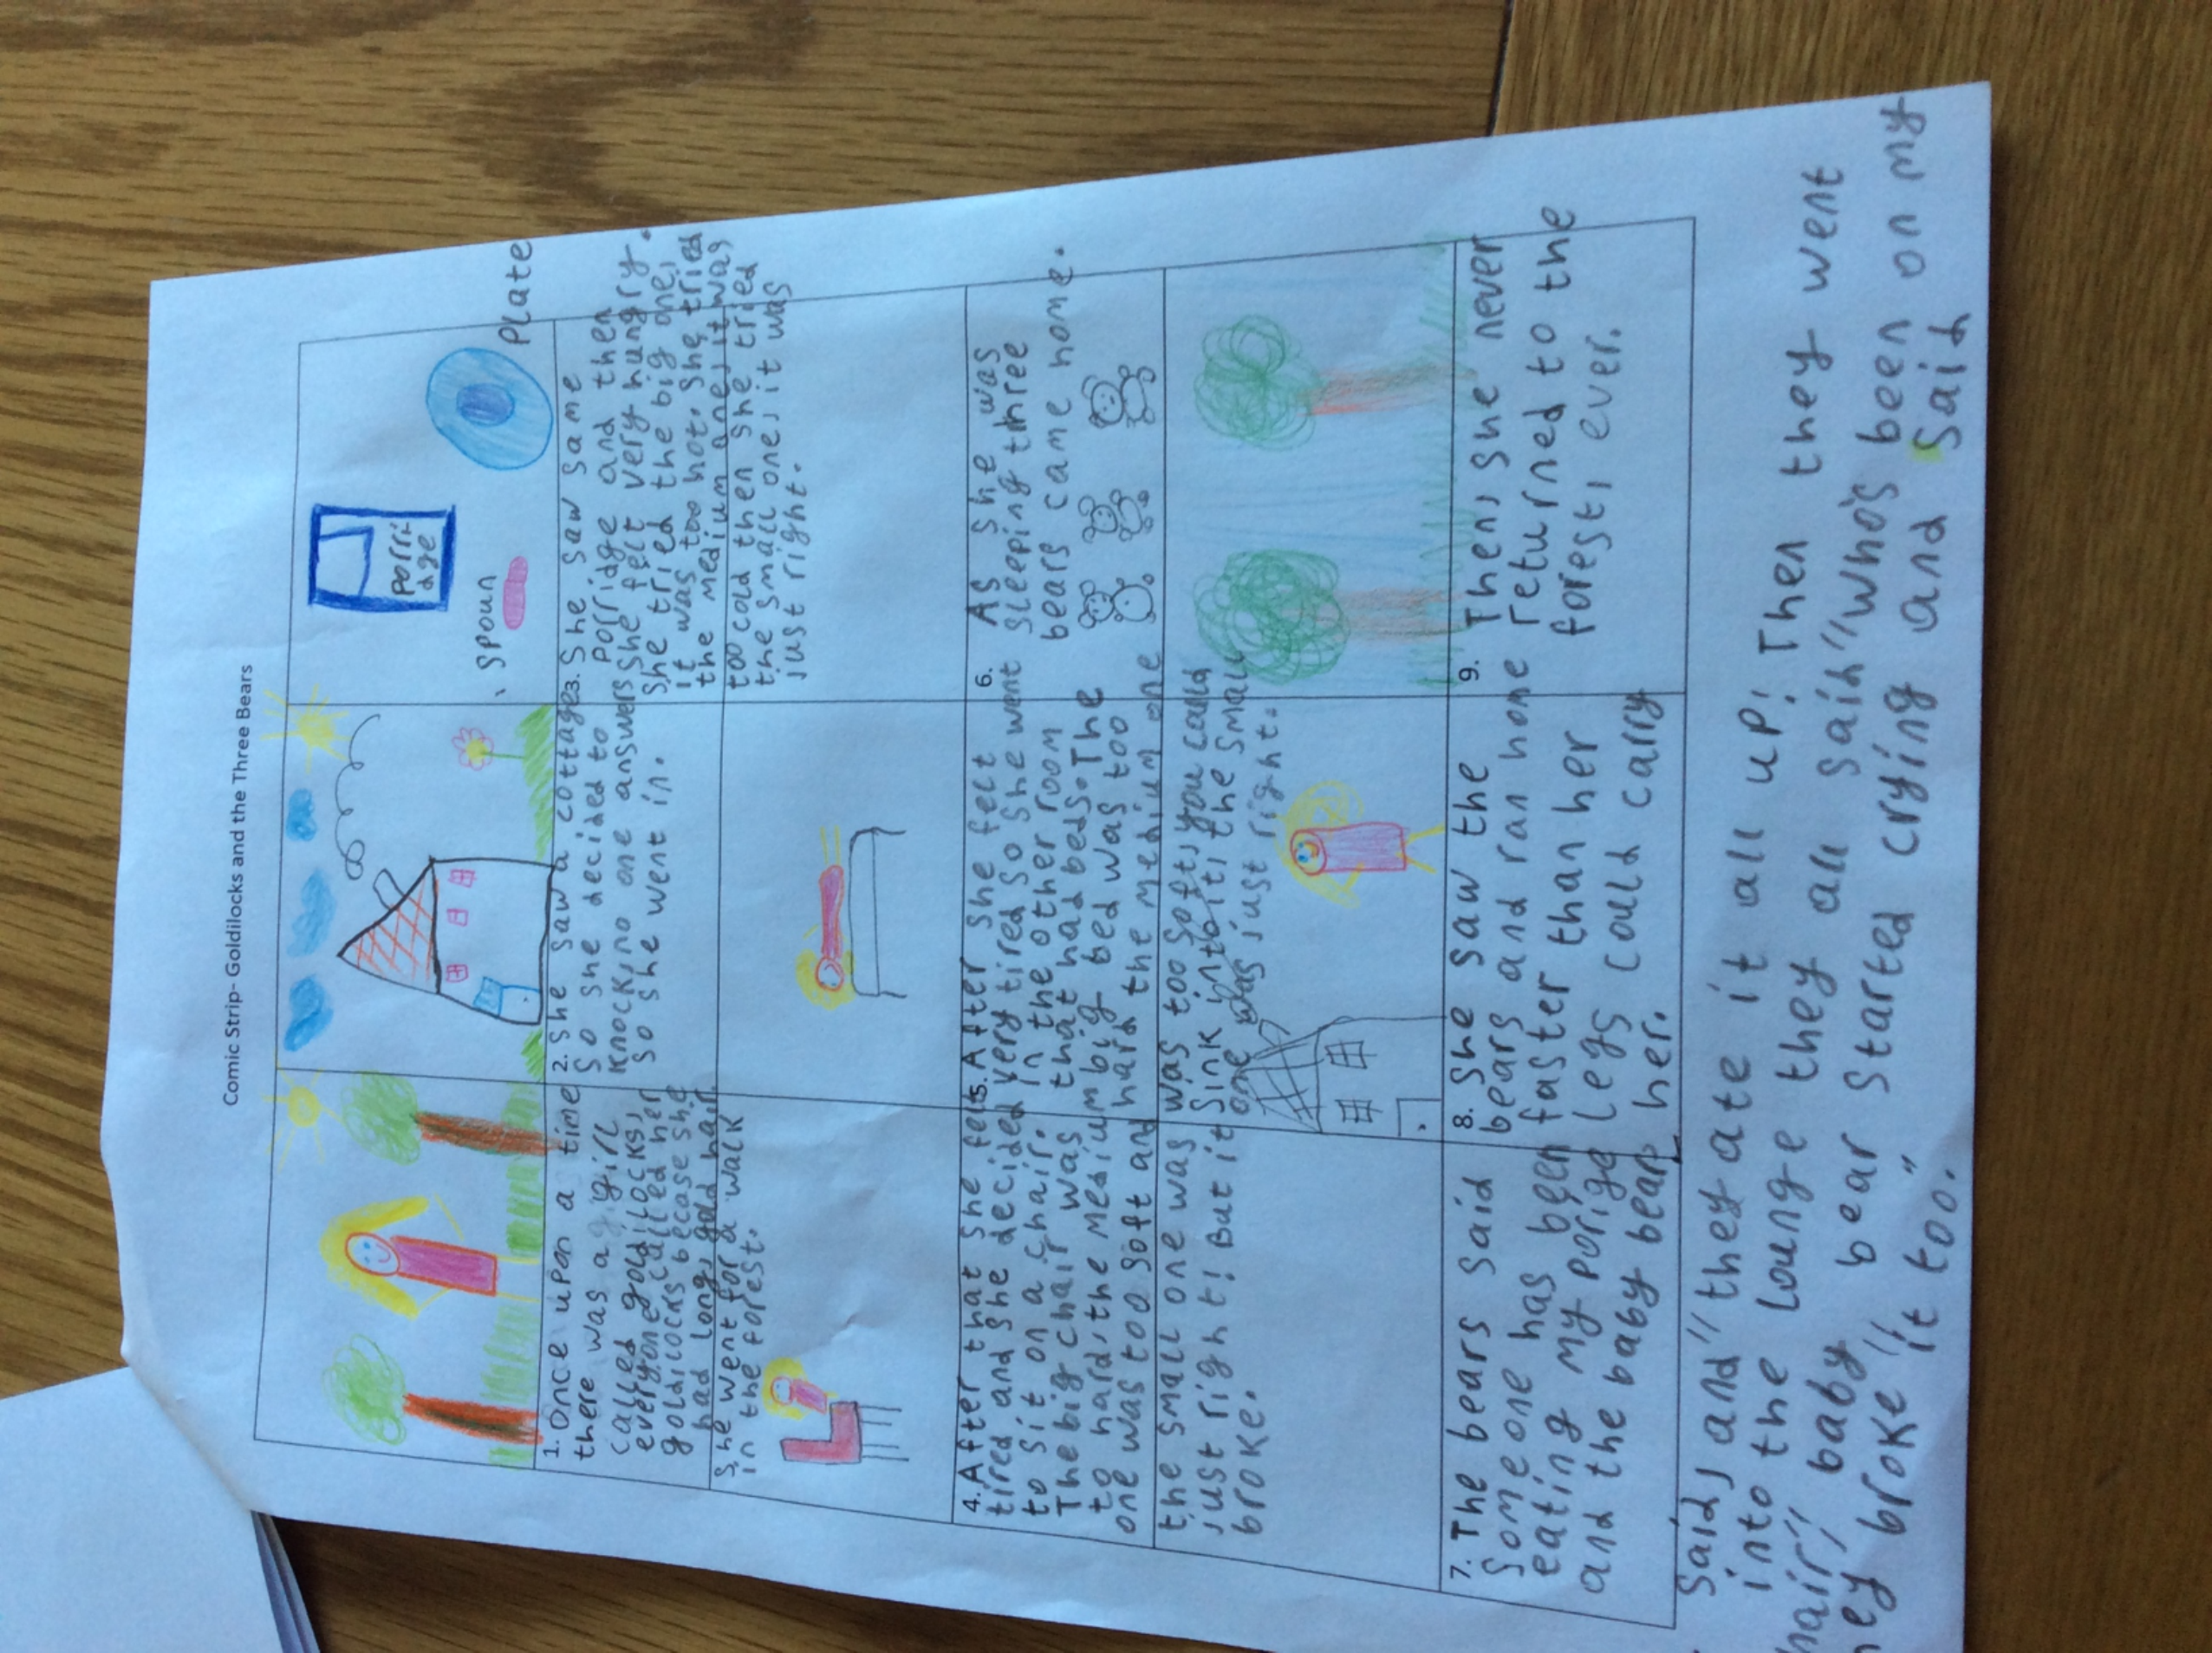 Comic Strip- Goldilocks and the Three Bears
porri-
dge
spoun
plate
1. Once upon a time
there was a girl
called goldilocks,
everyone called her
goldilocks becase she
had long, gold hair.
She went for a walk
in the forest.
2. She saw a cottage
so she decided to
knock, no one answers
so she went in.
3. She saw same
porridge and then
she felt very hungry.
She tried the big one,
it was too hot. She tried
the medium one, it was
too cold then she tried
the small one, it was
just right.
4. After that she felt
tired and she decided
to sit on a chair.
The big chair was
to hard, the medium
one was too soft and
the small one was
just right! But it
broke.
5. After she felt
very tired so she went
in the other room
that had beds. The
big bed was too
hard the medium one
was too soft, you could
sink into it, the small
one was just right.
6. As she was
sleeping three
bears came home.
7. The bears said
some one has been
eating my porige
and the baby bear
8. She saw the
bears and ran home
faster than her
legs could carry
her.
9. Then, she never
returned to the
forest, ever.
said, and "they ate it all up! Then they went
into the lounge they all said "who's been on my
hair," baby bear started crying and said
ey broke "it too."